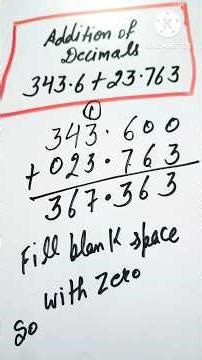 Addition of
Decimals
343.6+23.763
1
343.600
+ 023.763
367.363
Fill blank space
with Zero
So